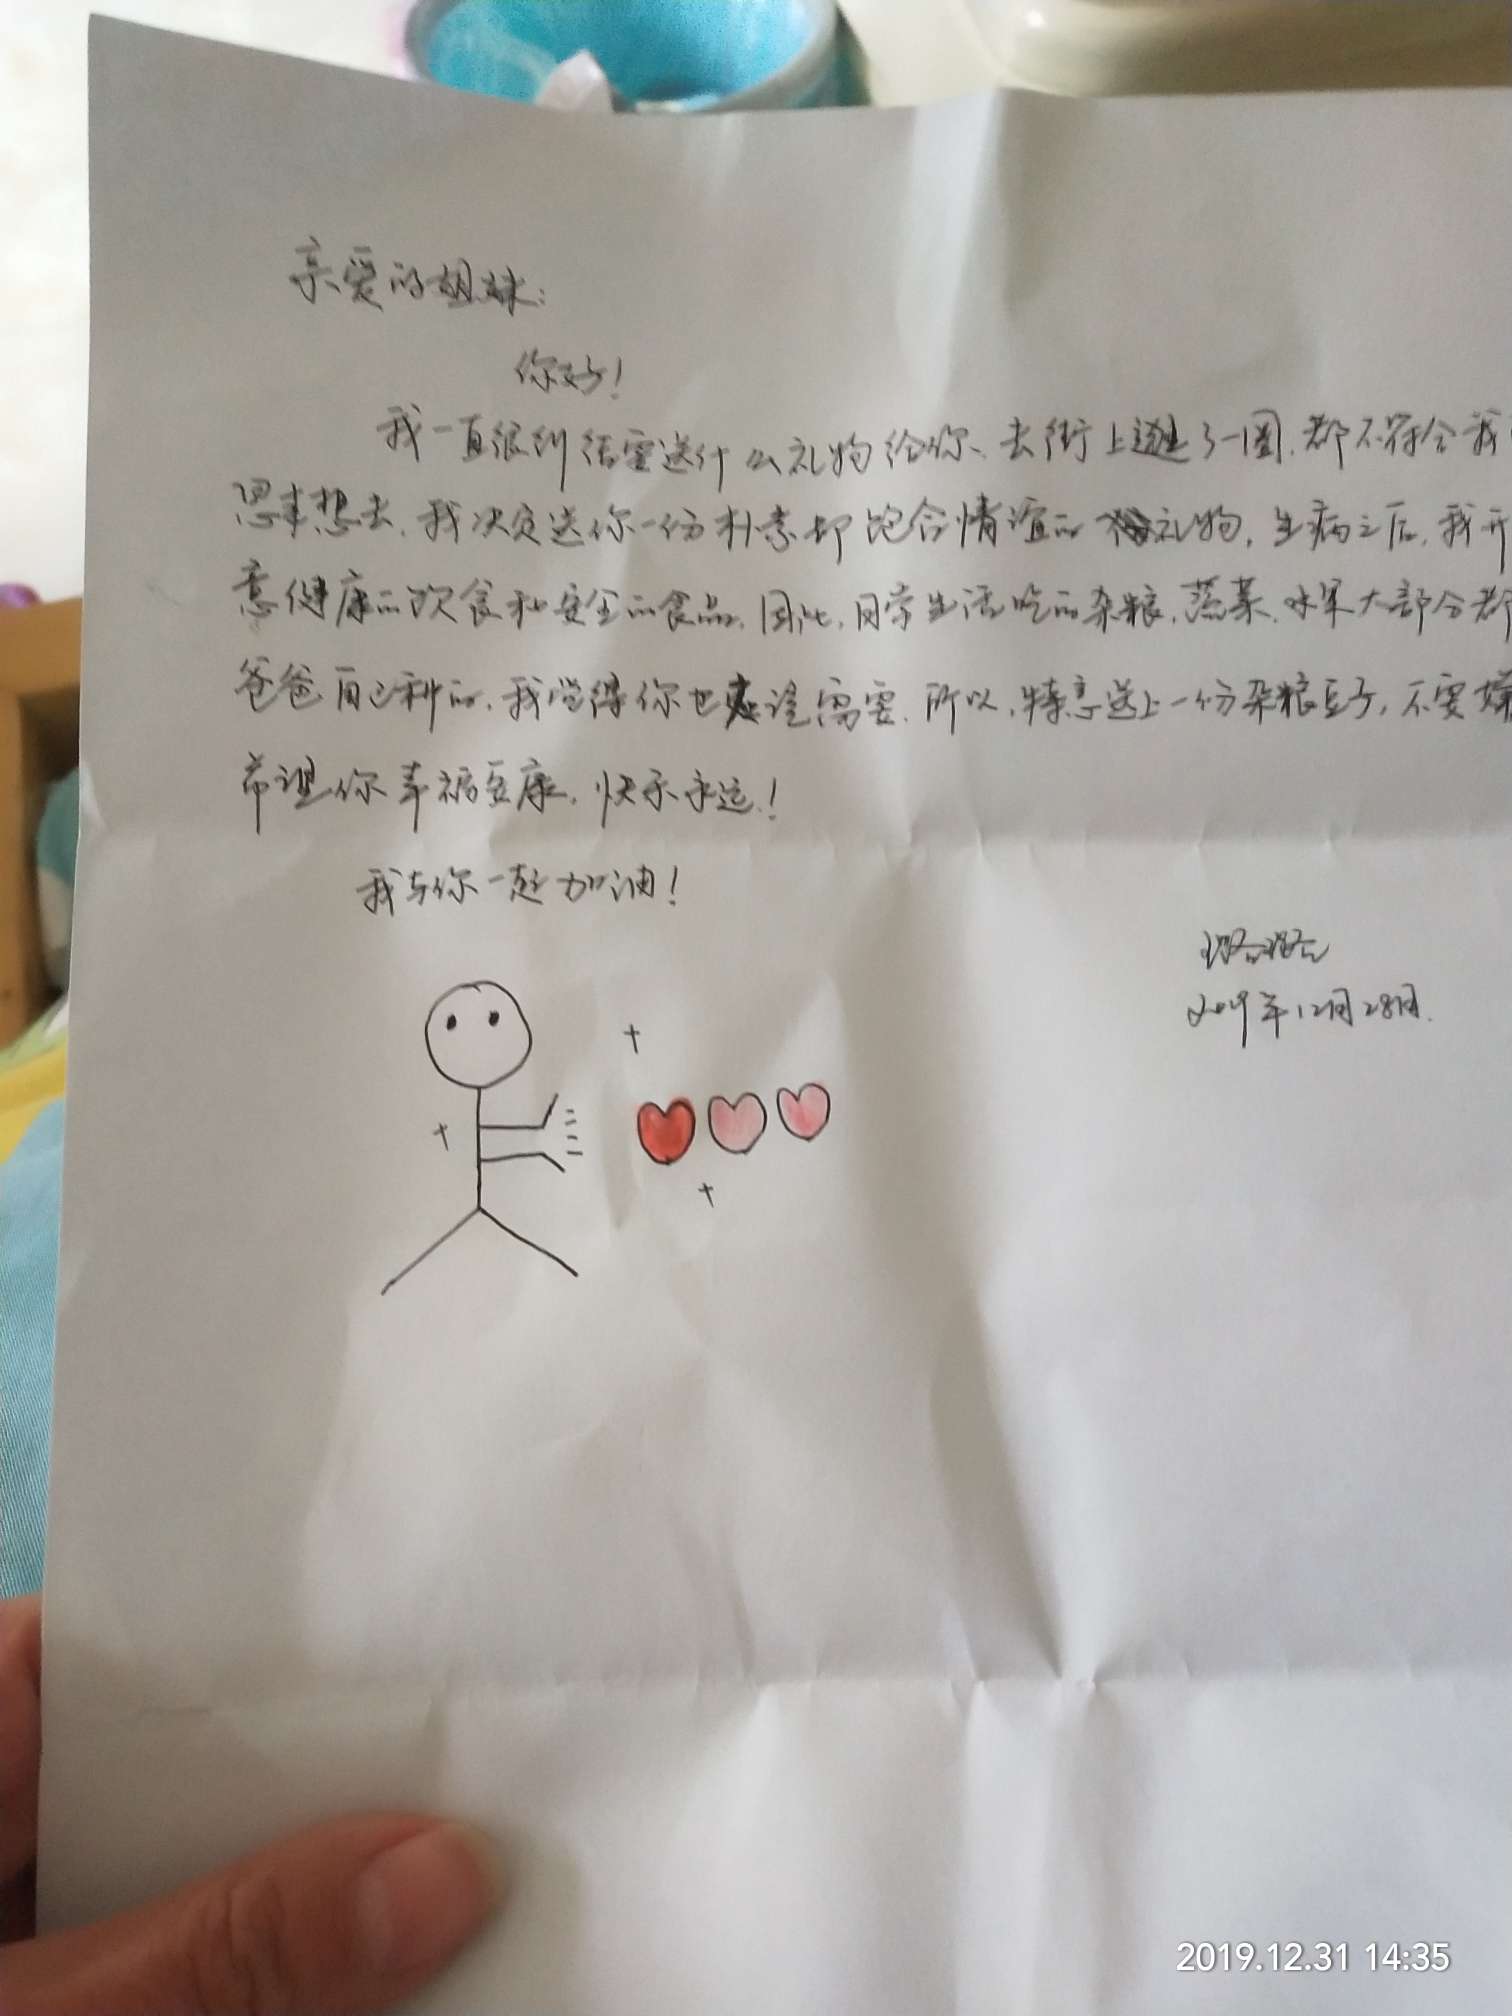 亲爱的姐妹：
你好！
我一直很纠结要送什么礼物给你、去街上逛了一圈，都不符合我
思来想去，我决定送你一份朴素却饱含情谊的礼物，生病之后，我开
意健康的饮食和安全的食品，因此，日常生活吃的杂粮，蔬菜、水果大部分都
爸爸自己种的，我觉得你也应该需要，所以，特意送上一份杂粮豆子，不要嫌
希望你幸福安康，快乐永远！
我与你一起加油！
2019年12月28日.
2019.12.31 14:35